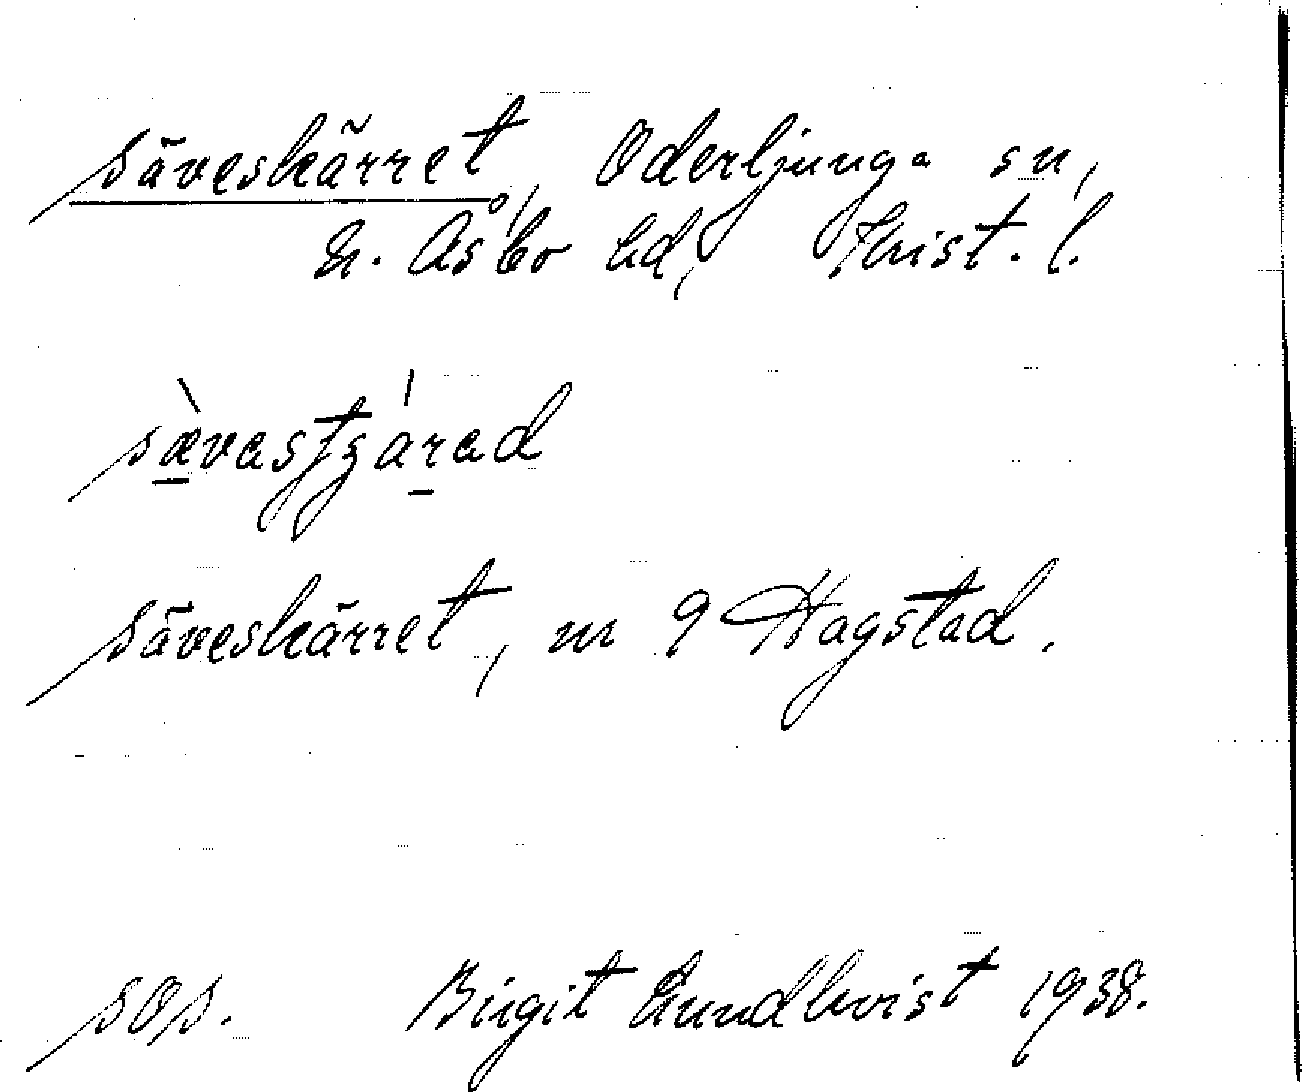 Säveskärret, Oderljunga sn,
N. Åsbo hd, Krist. l.
Säveskärret, m 9 Hagstad.
SOS. Birgit Lundkvist 1938.